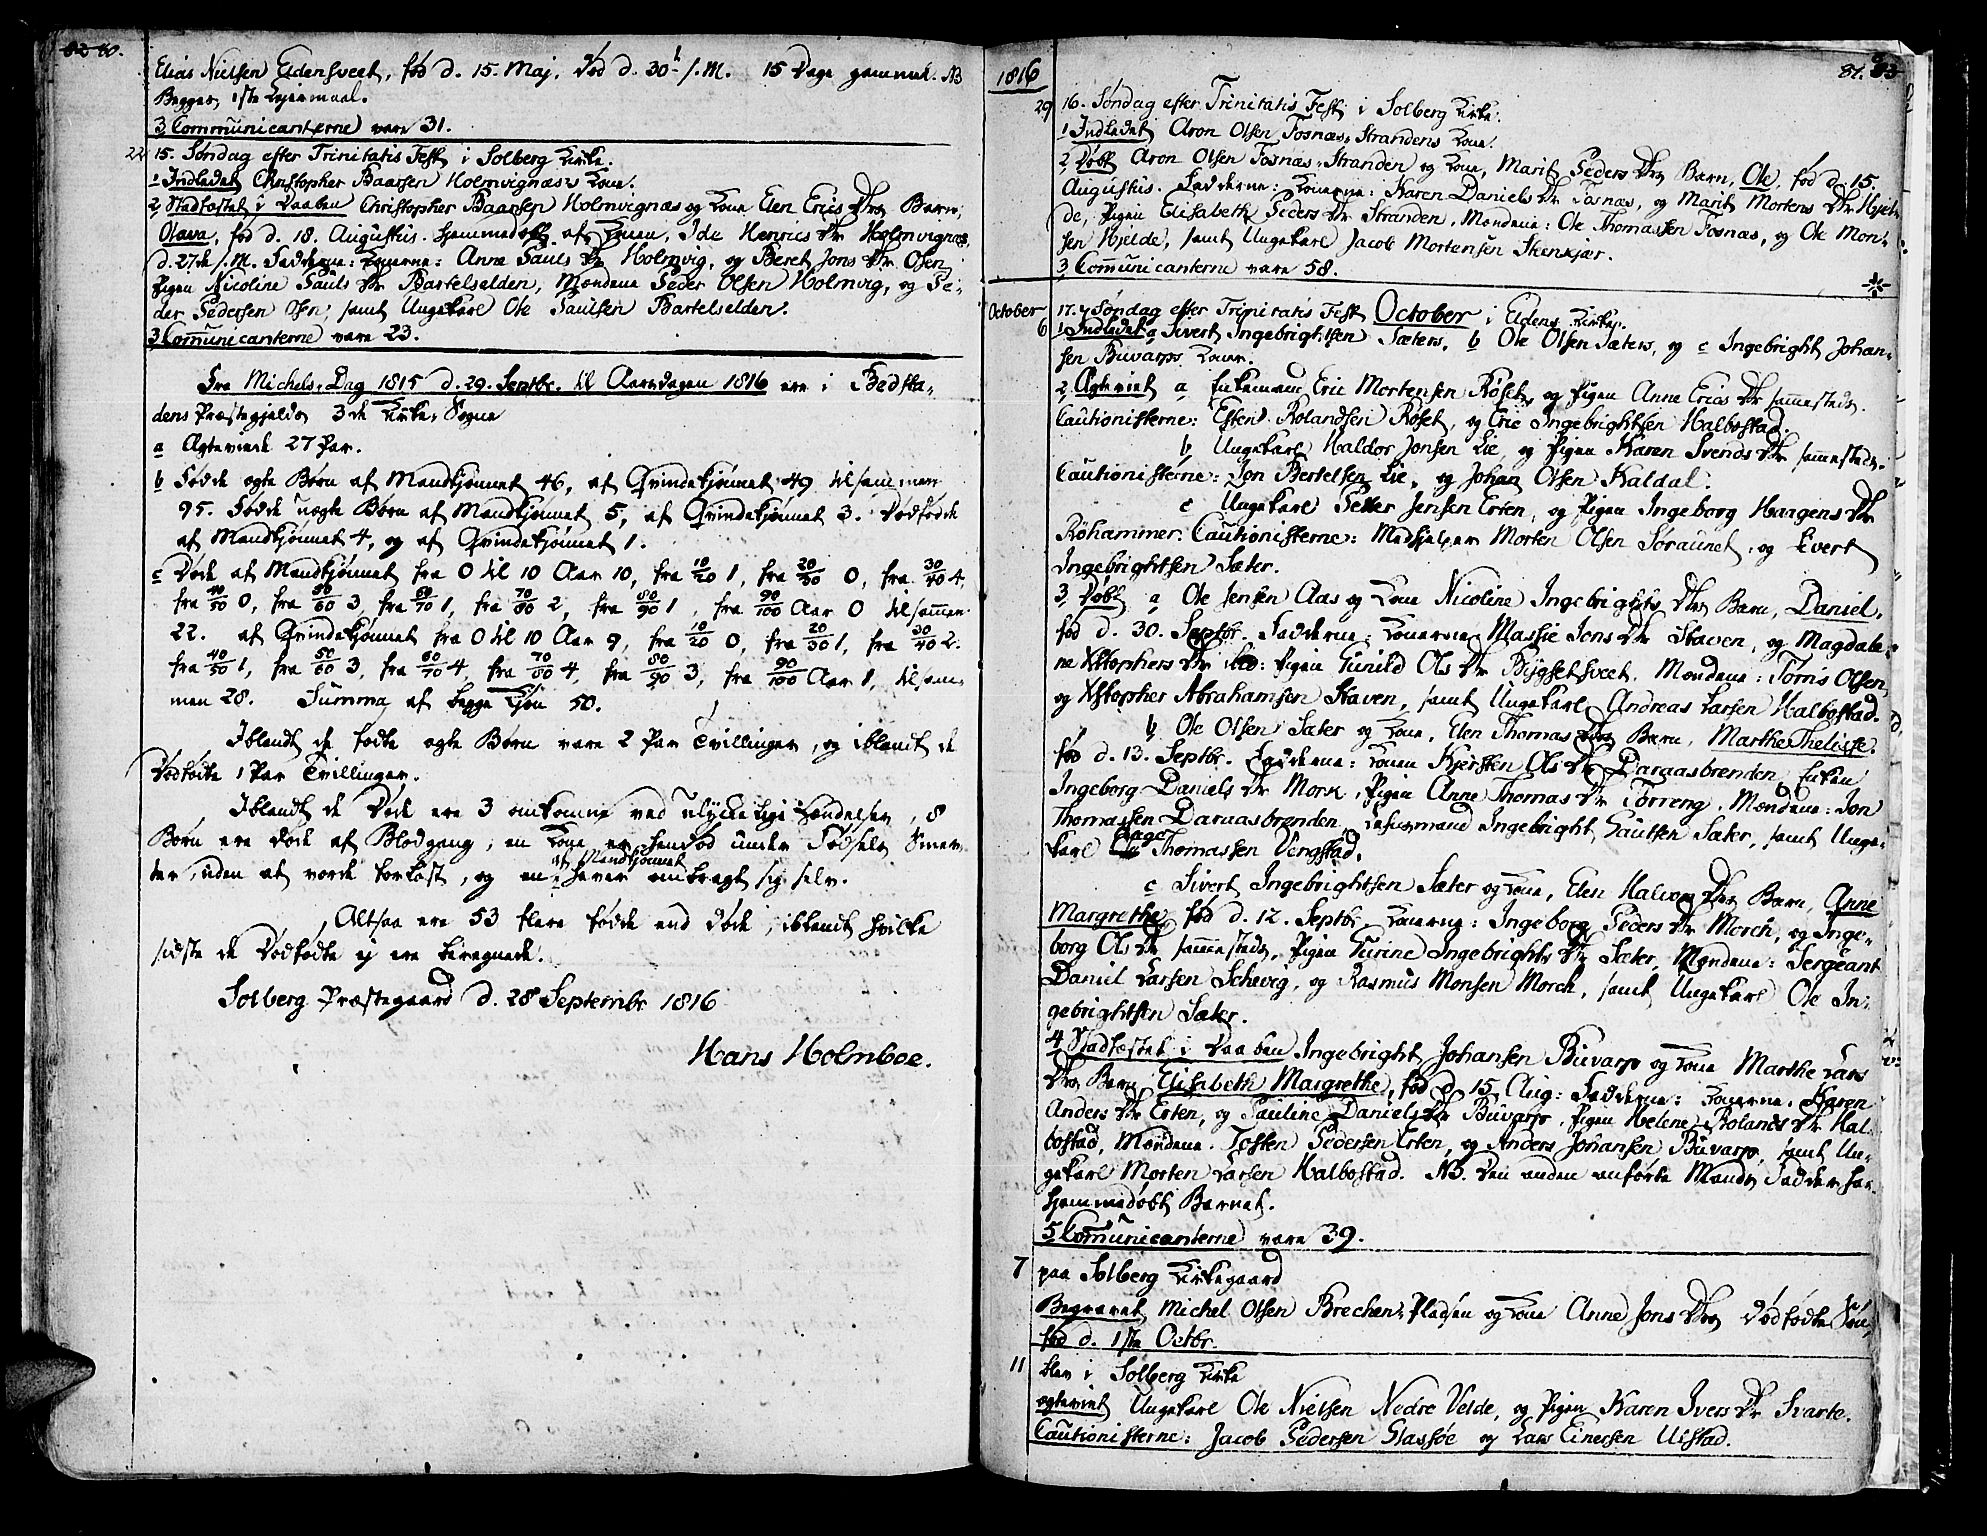 82 80.
Elias Nielsen Eldensveet, fød d. 15. Maj, død d. 30t s. M. 15 Dage gammel. NB
Begges 1ste Lejermaal.
3, Communicanterne vare 31.
22 15. Søndag efter Trinitatis Fest i Solberg Kirke.
1 Indledet Christopher Baarsen Holmvignæs's Kone.
2, Stadfæstet i Daaben Christopher Baarsen Holmvignæs og Kone Elen Erics Dtrs Barn,
Olava, fød d. 18. Augustus. hjemmedøbt af Konen, Ida Henrics Dtr Holmvignæs,
d. 27de s. M. Fadderne: Konerne: Anne Pauls Dtr Holmvig, og Beret Jons Dtr Osen,
Pigen Nicoline Pauls Dtr Bartelselden, Mændene Peder Olsen Holmvig, og Pe-
der Pedersen Osen, samt Ungekarl Ole Paulsen Bartelselden.
3, Communicanterne vare 23.
Fra Michels-Dag 1815 d. 29. Septbr. til Aarsdagen 1816 ere i Bedsta-
dens Præstegjelds 3de Kirke-Sogne
a Ægteviede 27 Par.
b Fødde ægte Børn af Mandkjønnet 46, af Qvindekjønnet 49 tilsammen
95. Fødde uægte Børn af Mandkjønnet 5, af Qvindekjønnet 3. Dødfødde
af Mandkjønnet 4, og af Qvindekjønnet 1.
c Døde af Mandkjønnet fra 0 til 10 Aar 10, fra 10/20 1, fra 20/30 0, fra 30/40 4,
fra 40/50 0, fra 50/60 3, fra 60/70 1, fra 70/80 2, fra 80/90 1, fra 90/100 Aar 0 tilsammen
22. af Qvindekjønnet fra 0 til 10 Aar 9, fra 10/20 0, fra 20/30 1, fra 30/40 2.
fra 40/50 1, fra 50/60 3, fra 60/70 4, fra 70/80 4, fra 80/90 3, fra 90/100 Aar 1, tilsam-
men 28. Summa af begge Kjøn 50.
Iblandt de fødte ægte Børn vare 2 Par Tvillinger, og iblandt de
Dødfødte 1 Par Tvillinger.
Iblandt de Døde ere 3 omkomne ved ulykkelige Hændelser, 8
Børn ere døde af Blodgang; en Kone er hendød under Fødsels Smer-
ter, uden at vorde forløst, og en af Mandkjønnet haver ombragt sig selv.
Altsaa ere 53 flere fødde end døde, iblandt hvilke
sidste de Dødfødte ej ere beregnede.
Solberg Præstegaard d. 28 Septembr 1816
Hans Holmboe.
1816 81. 83
29 16. Søndag efter Trinitatis Fest i Solberg Kirke.
1 Indledet Aron Olsen Fosnæs-Strandens Kone.
2, Døbt Aron Olsen Fosnæs-Stranden og Kone, Marit Peders Dtrs Barn, Ole, fød d. 15.
Augustus. Fadderne: Konerne: Karen Daniels Dtr Fosnæs, og Marit Mortens Dtr Hjel-
de, Pigen Elisabeth Peders Dtr Stranden, Mændene: Ole Thomassen Fosnæs, og Ole Mon-
sen Hjelde, samt Ungekarl Jacob Mortensen Stenkjær.
3, Communicanterne vare 58.
October 17. Søndag efter Trinitatis Fest October i Eldens Kirke.
6 1 Indledet a Sivert Ingebrightsen Sæters, b Ole Olsen Sæters, og c Ingebright Johan-
sen Buvarps Koner.
2, Ægteviet a Enkemand Eric Mortensen Røset, og Pigen Anne Erics Dtr sammesteds.
Cautionisterne: Esten Rolandsen Røset, og Eric Ingebrightsen Halbostad.
b Ungekarl Haldor Jonsen Lie, og Pigen Karen Svends Dtr sammesteds.
Cautionisterne: Jon Bertelsen Lie, og Johan Olsen Kaldal.
c Ungekarl Peter Jensen Erten, og Pigen Ingeborg Hargens Dtr
Røhammer. Cautionisterne: Medhjelper Morten Olsen Soraunet, og Sivert
Ingebrightsen Sæter.
3, Døbt a Ole Jensen Aas og Kone Nicoline Ingebrights Dtrs Barn, Daniel,
fød d. 30. Septbr. Fadderne: Konerne Massie Jons Dtr Staven, og Magdale-
ne Xstophers Dtr ibid: Pigen Gunild Ols Dtr Bygsetsveet. Mændene: Tørris Olsen,
og Xstopher Abrahamsen Staven, samt Ungekarl Andreas Larsen Halbostad.
b Ole Olsen Sæter og Kone, Elen Thomas Dtrs Barn, Marthe Thelisse,
fød d. 13. Septbr. Fadderne: Konen Kjersten Ols Dtr Daraasbrenden, Enken
Ingeborg Daniels Dtr Mork, Pigen Anne Thomas Dtr Torreng. Mændene: Jon
Thomassen Daraasbrenden, Lehnsmand Ingebright Gautsen Sæter, samt Unge-
karl Aage Thomassen Vengstad.
c Sivert Ingebrightsen Sæter og Kone, Elen Halvors Dtrs Barn, Anne
Margrethe, fød d. 12. Septbr. Konerne: Ingeborg Peders Dtr Morch, og Inge-
borg Ols Dtr sammesteds, Pigen Gurine Ingebrights Dtr Sæter, Mændene: Sergeant
Daniel Larsen Schevig, og Rasmus Monsen Morch, samt Ungekarl Ole In-
gebrightsen Sæter.
4 Stadfæstet i Daaben Ingebright Johansen Buvarp og Kone Marthe Lars
Dtrs Barn Elisabeth Margrethe, fød d 15. Aug: Fadderne: Konerne. Karen
Anders Dtr Erten, og Pauline Daniels Dtr Buvarp, Pigen Helene Rolands Dtr Hal-
bostad, Mændene. Tosten Pedersen Erten, og Anders Johansen Buvarp, samt Un-
gekarl Morten Larsen Halbostad. NB. Den anden anførte Mands Fadder har
hjemmedøbt Barnet.
5 Communicanterne vare 39.
7 paa Solberg Kirkegaard
Begravet Michel Olsen Brechen-Pladsen og Kone Anne Jons Dtrs dødfødte Søn,
fød d. 1ste Octbr.
11 blev i Solberg Kirke
ægteviet Ungekarl Ole Nielsen Nedre Velde, og Pigen Karen Ivers Dtr Svarte.
Cautionisterne: Jacob Pedersen Glassøe og Lars Einersen Ulstad.